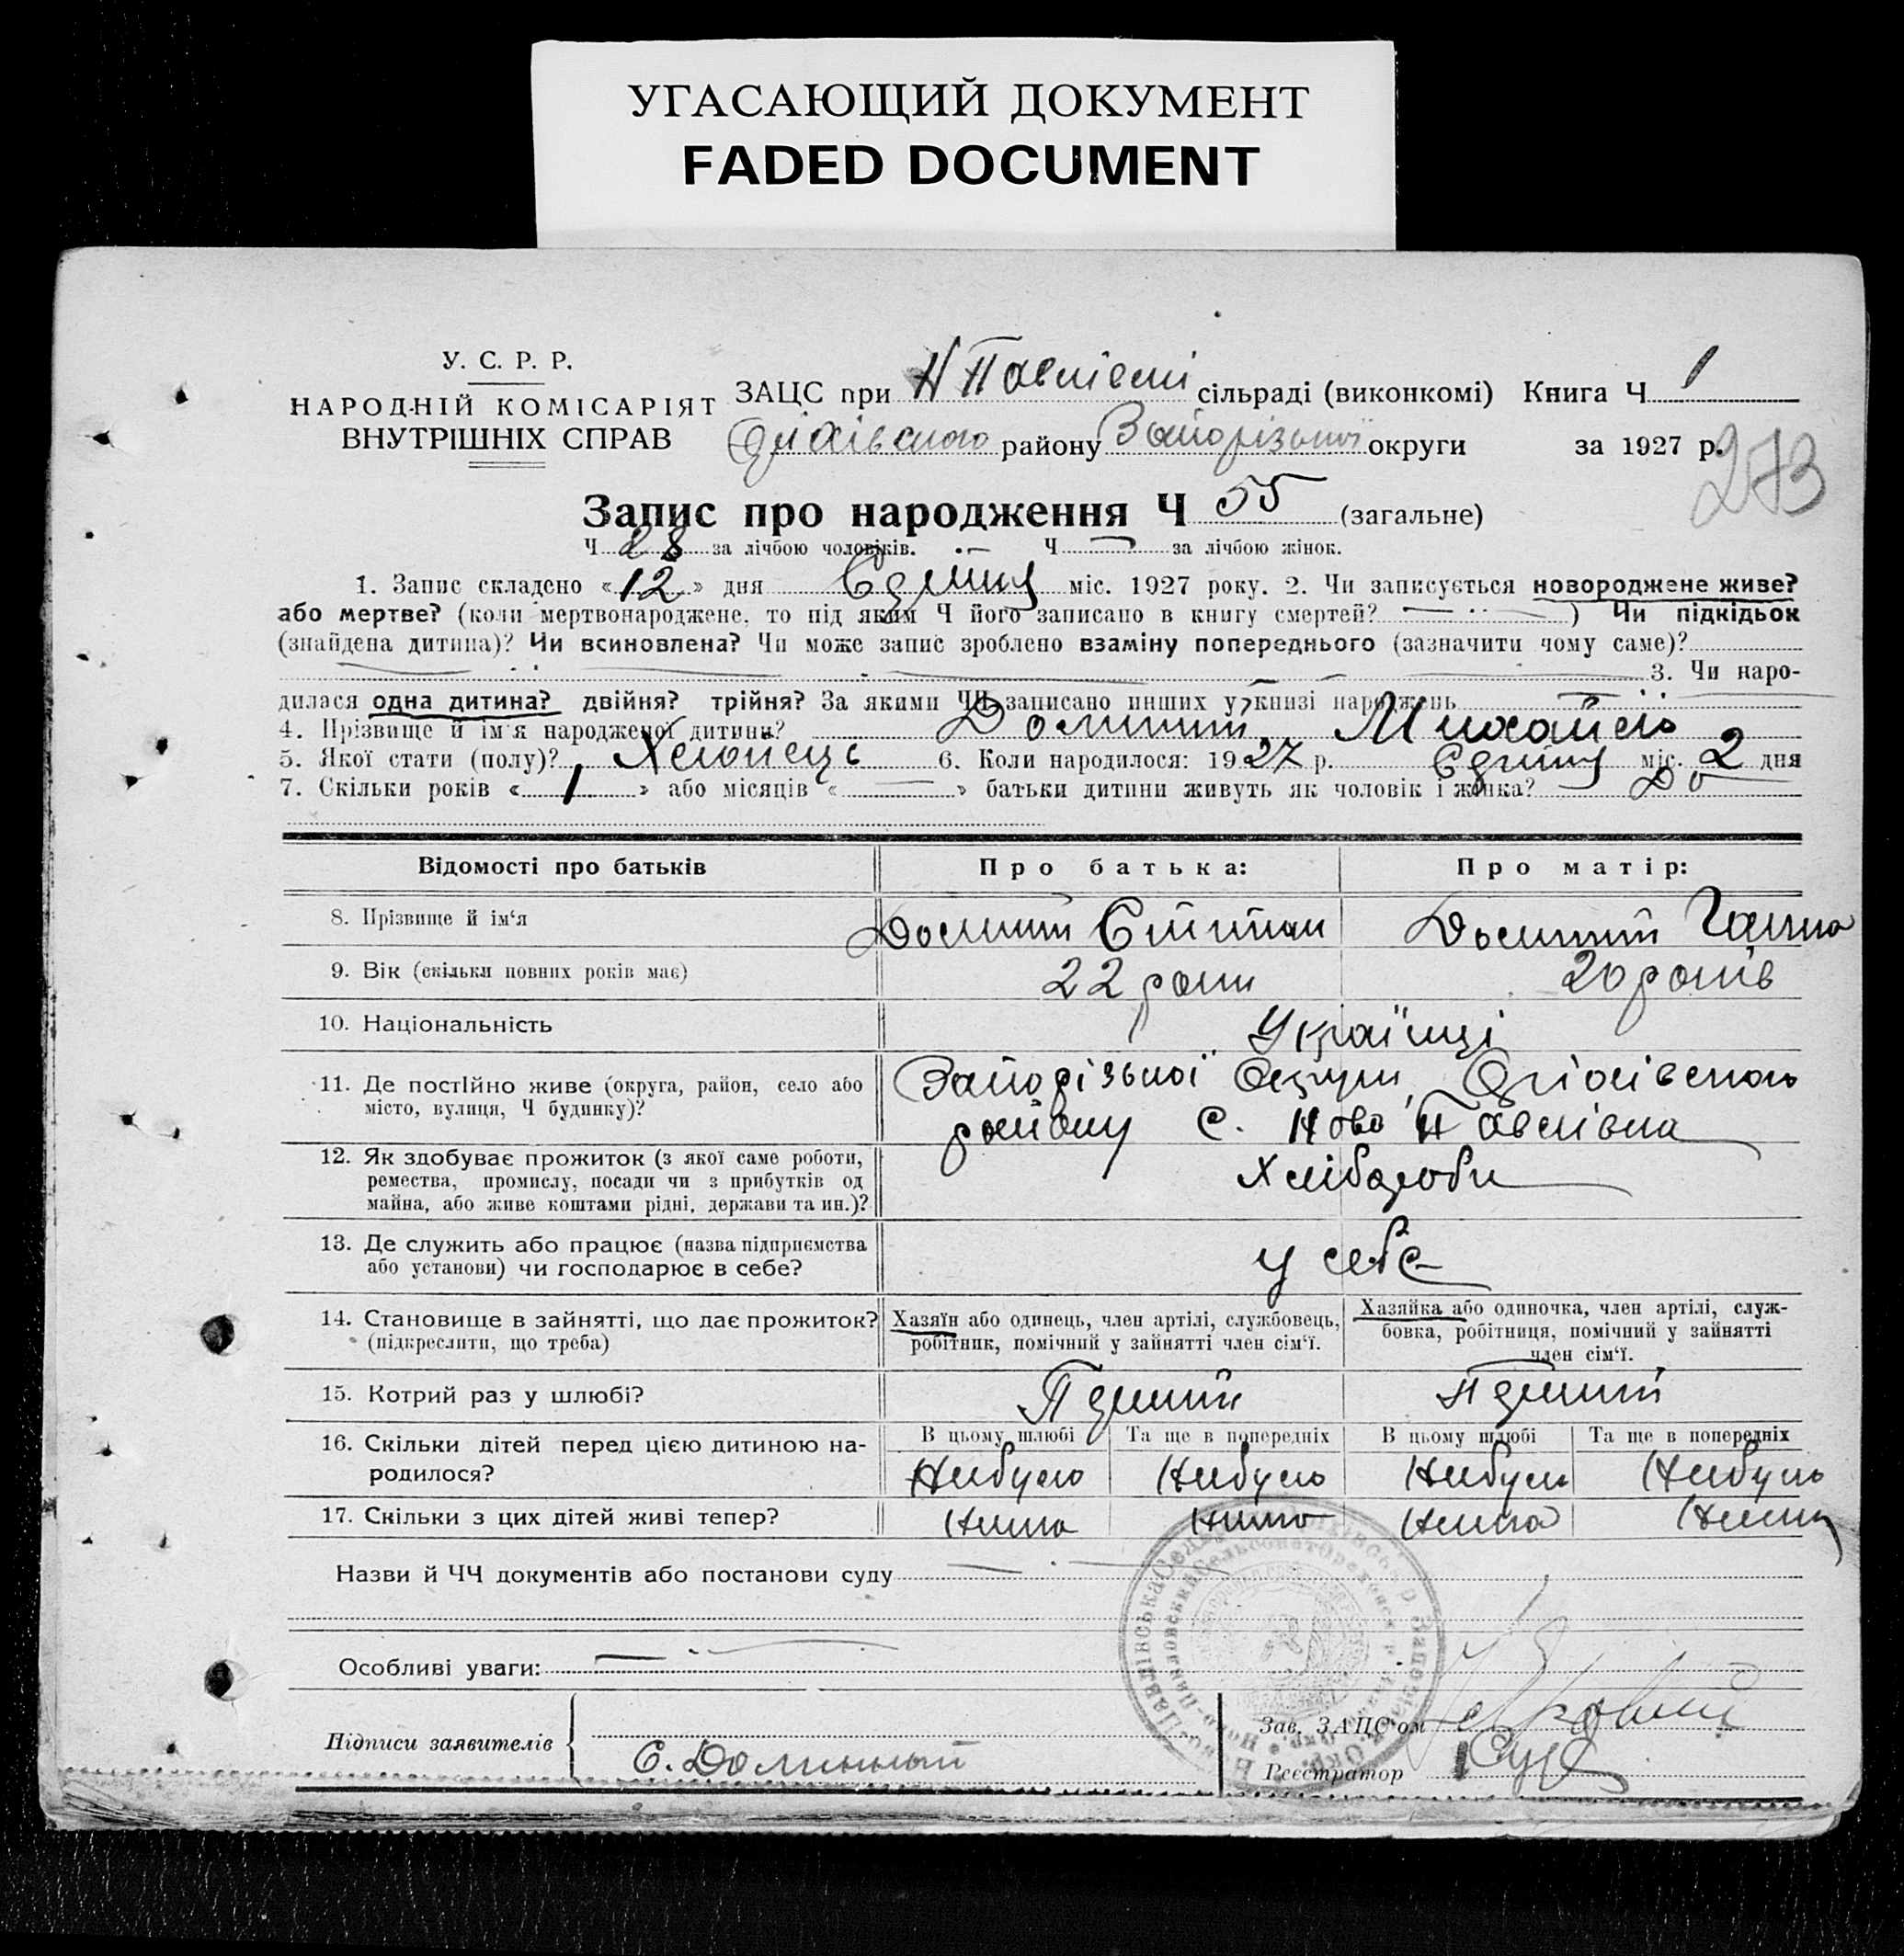 УГАСАЮЩИЙ ДОКУМЕНТ
FADED DOCUMENT
У. С. Р. Р.
НАРОДНІЙ КОМІСАРІЯТ
ВНУТРІШНІХ СПРАВ
ЗАЦС при Н Павлівські сільраді (виконкомі) Книга Ч 1
Оріхівського району Запорізької округи за 1927 р.
273
Запис про народження Ч 55 (загальне)
Ч 28 за лічбою чоловіків. Ч — за лічбою жінок.
1. Запис складено «12» дня Серпня міс. 1927 року. 2. Чи записується новороджене живе?
або мертве? (коли мертвонароджене, то під яким Ч його записано в книгу смертей? — ) Чи підкідьок
(знайдена дитина)? Чи всиновлена? Чи може запис зроблено взаміну попереднього (зазначити чому саме)?
3. Чи наро-
дилася одна дитина? двійня? трійня? За якими ЧЧ записано инших у книзі народжень
4. Прізвище й ім'я народженої дитини? Михайло
5. Якої стати (полу)? Хлопець 6. Коли народилося: 1927 р. Серпня міс. 2 дня
7. Скільки років « 1 » або місяців « — » батьки дитини живуть як чоловік і жінка?
Відомості про батьків Про батька: Про матір:
8. Прізвище й ім'я Степан Ганна
9. Вік (скільки повних років має) 22 роки 20 років
10. Національність Українці
11. Де постійно живе (округа, район, село або
місто, вулиця, Ч будинку)?
Запорізької Округи, Оріхівського
району с. Ново Павлівка
12. Як здобуває прожиток (з якої саме роботи,
ремества, промислу, посади чи з прибутків од
майна, або живе коштами рідні, держави та ин.)?
Хлібороби
13. Де служить або працює (назва підприємства
або установи) чи господарює в себе?
у себе
14. Становище в зайнятті, що дає прожиток?
(підкреслити, що треба)
Хазяїн або одинець, член артілі, службовець,
робітник, помічний у зайнятті член сім'ї.
Хазяйка або одиночка, член артілі, служ-
бовка, робітниця, помічний у зайнятті
член сім'ї.
15. Котрий раз у шлюбі? Перший Перший
16. Скільки дітей перед цією дитиною на-
родилося?
В цьому шлюбі Та ще в попередніх В цьому шлюбі Та ще в попередніх
Небуло Небуло Небуло Небуло
17. Скільки з цих дітей живі тепер? Нима Нима Нима Нима
Назви й ЧЧ документів або постанови суду
Особливі уваги:
Підписи заявителів
С. Долинный
Зав. ЗАЦС'ом
Реєстратор